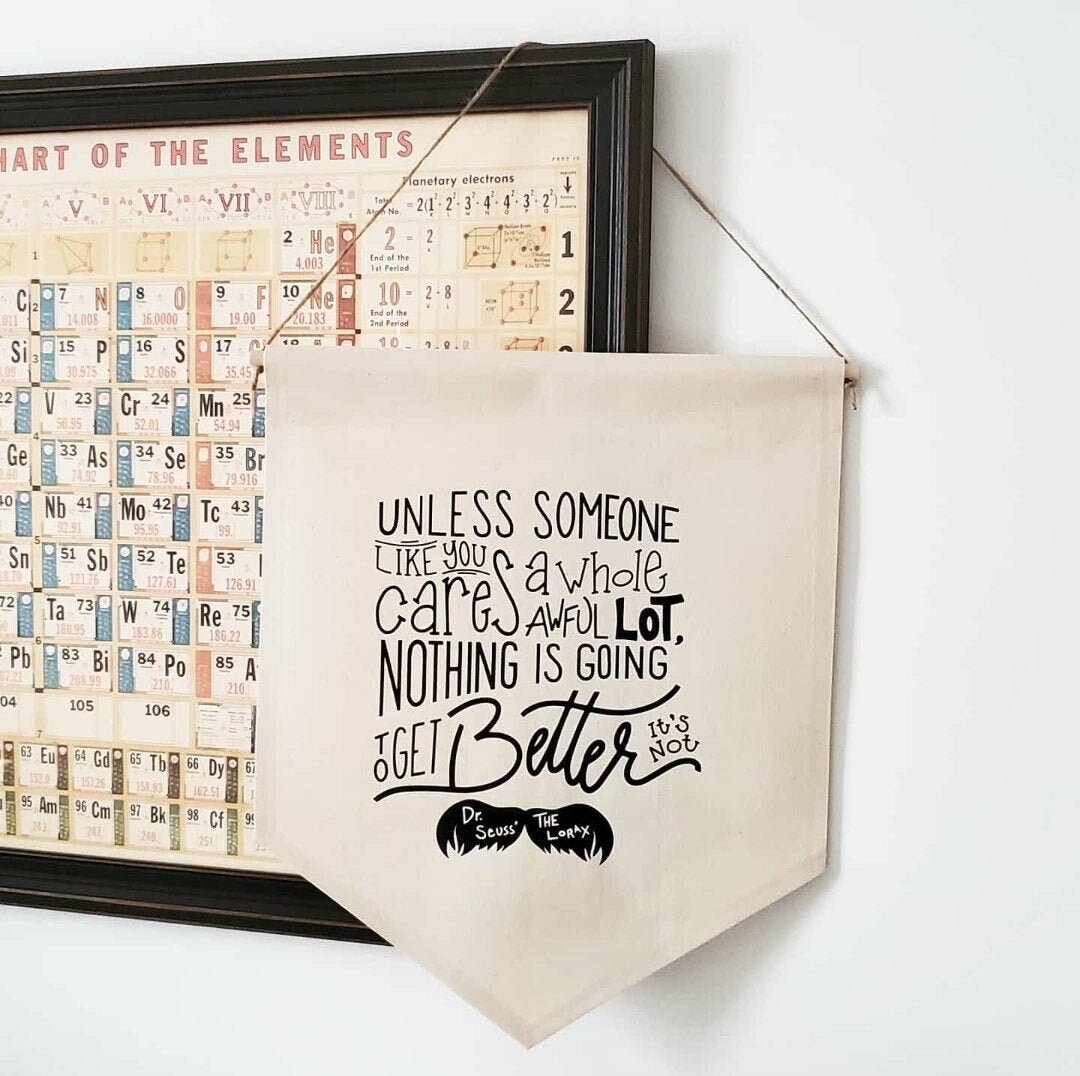 HART OF THE ELEMENTS
V VI VII VIII
Planetary electrons
Total Atom No. = 2(1² 2² 3² 4² 4² 3² 2²)
2 He 4.003
2 = 2
End of the 1st Period
1
C 011
7 N 14.008
8 O 16.0000
9 F 19.00
10 Ne 20.183
10 = 2 - 8
End of the 2nd Period
2
Si 3.09
15 P 30.975
16 S 32.066
17 35.45
18
22
V 23 50.95
Cr 24 52.01
Mn 25 54.94
Ge
33 As 74.92
34 Se 78.96
35 Br 79.916
40
Nb 41 92.91
Mo 42 95.95
Tc 43 99.
Sn
51 Sb 121.76
52 Te 127.61
53 I 126.91
72
Ta 73 180.95
W 74 183.86
Re 75 186.22
Pb
83 Bi 208.99
84 Po 210.
85 A 210.
04 105 106
63 Eu 152.0
64 Gd 157.26
65 Tb 158.93
66 Dy 162.51
67
95 Am 243.
96 Cm
97 Bk 249.
98 Cf 251
99
UNLESS SOMEONE
LIKE YOU
cares a whole
AWFUL LOT,
NOTHING IS GOING
TO GET Better It's Not
Dr. Seuss' THE LORAX